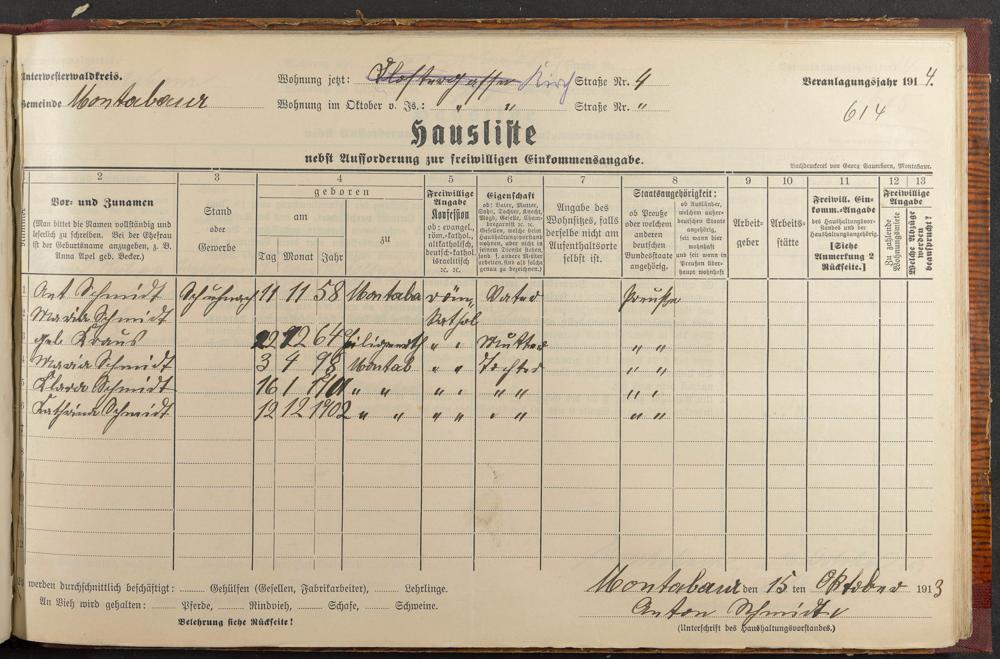 Unterwesterwaldkreis.
Wohnung jetzt: Klostergasse Kirch Straße Nr. 4
Veranlagungsjahr 1914.
Gemeinde Montabaur
Wohnung im Oktober v. Js.: " " Straße Nr. "
614
Hausliste
nebst Aufforderung zur freiwilligen Einkommensangabe.
Buchdruckerei von Georg Sauerborn, Montabaur.
2 3 4 5 6 7 8 9 10 11 12 13
Vor- und Zunamen
(Man bittet die Namen vollständig und
leserlich zu schreiben. Bei der Ehefrau
ist der Geburtsname anzugeben, z. B.
Anna Apel geb. Becker.)
Stand
oder
Gewerbe
geboren
am
zu
Tag Monat Jahr
Freiwillige
Angabe
Konfession
ob: evangel.,
röm.-kathol.,
altkatholisch,
deutsch-kathol.
israelitisch
rc. rc.
Eigenschaft
ob: Vater, Mutter,
Sohn, Tochter, Knecht,
Magd, Geselle, Cham-
bregarnist rc. rc.
Gesellen, welche beim
Haushaltungsvorstand
wohnen, aber nicht in
seinem Dienste stehen,
sind f. andere Mieter
und als solche
genau zu bezeichnen.)
Angabe des
Wohnsitzes, falls
derselbe nicht am
Aufenthaltsorte
selbst ist.
Staatsangehörigkeit:
ob Preuße
oder welchem
anderen
deutschen
Bundesstaate
angehörig.
ob Ausländer,
welchem außer-
deutschen Staate
angehörig,
seit wann hier
wohnhaft
und seit wann in
Preußen über-
haupt wohnhaft
Arbeit-
geber
Arbeits-
stätte
Freiwill. Ein-
komm.-Angabe
des Haushaltungsvor-
standes und der
Haushaltungsangehörig.
[Siehe
Anmerkung 2
Rückseite.]
Freiwillige
Angabe
Zu zahlende
Wohnungsmiete
Welche Abzüge
werden
beansprucht?
1 Ant Schmidt Schuhmach 11 11 58 Montaba röm. Vater Preuße
Maria Schmidt Kathol
geb Kraus 22 12 64 " " Mutter " "
Maria Schmidt 3 4 98 Montab " " Tochter " "
Klara Schmidt 16 1 1901 " " " " " " " "
Kathrina Schmidt 12 12 1902 " " " " " " " "
werden durchschnittlich beschäftigt: Gehülfen (Gesellen, Fabrikarbeiter), Lehrlinge.
An Vieh wird gehalten: Pferde, Rindvieh, Schafe, Schweine.
Belehrung siehe Rückseite!
Montabaur den 15 ten Oktober 1913
Anton Schmidt
(Unterschrift des Haushaltungsvorstandes.)